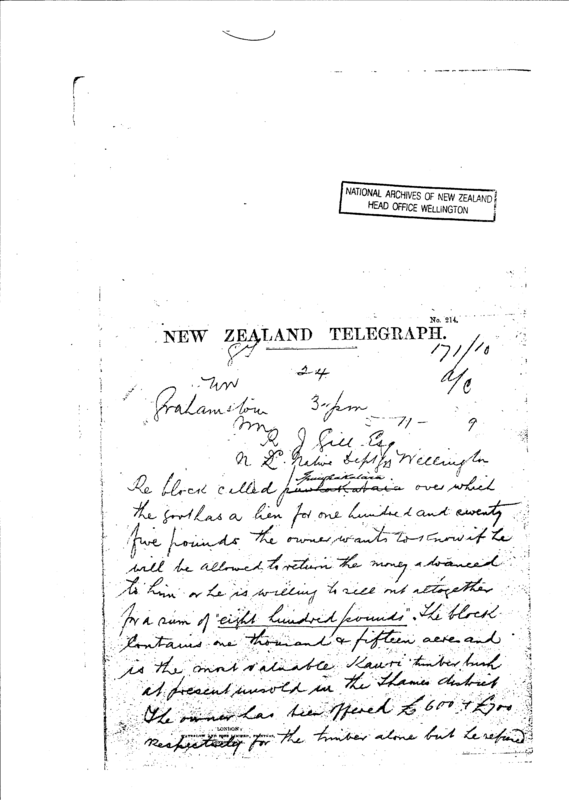 NATIONAL ARCHIVES OF NEW ZEALAND
HEAD OFFICE WELLINGTON
No. 214.
NEW ZEALAND TELEGRAPH.
171/10
24
a/c
Grahamstown 3 pm
71 - 9
R J Gill Esq
Native Dept Wellington
Re block called over which
the govt has a lien for one hundred and twenty
five pounds the owner wants to know if he
will be allowed to return the money advanced
to him or he is willing to sell out altogether
for a sum of "eight hundred pounds". The block
Contains one thousand & fifteen acres and
is the most valuable Kauri timber bush
at present unsold in the Thames district
The owner has been offered £600 & £700
LONDON:
respectively for the timber alone but he refused